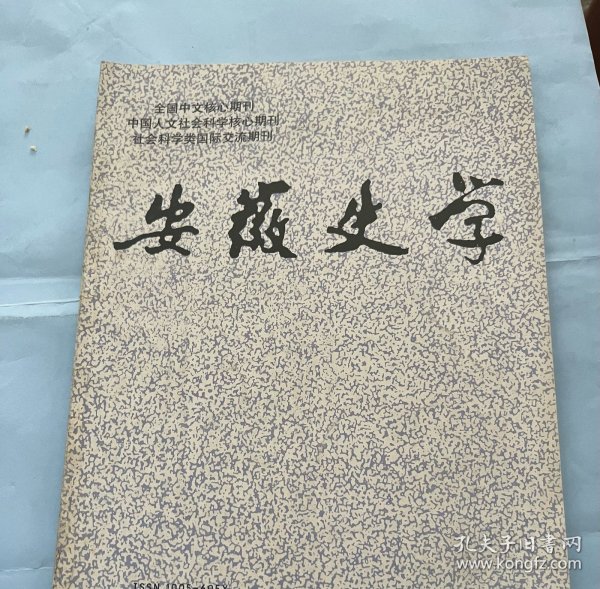 全国中文核心期刊
中国人文社会科学核心期刊
社会科学类国际交流期刊
安徽史学
ISSN 1005-605X
孔夫子旧书网
www.kongfz.com